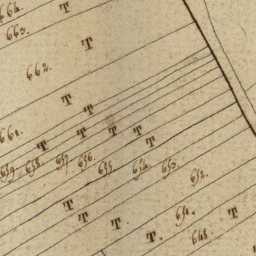 664. T
663.
T
662.
T
T
661. T T T T T
659. 658. 657. 656. 655. 654. 653. 652.
T
T T 650. T
T 648.